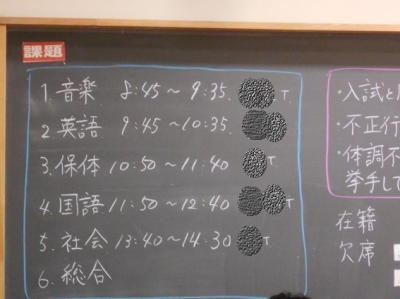 課題
1. 音楽 8:45～9:35. T.
2. 英語 9:45～10:35.
3. 保体 10:50～11:40 T
4. 国語 11:50～12:40 T
5. 社会 13:40～14:30 T
6. 総合
・入試と
・不正行
・体調不
挙手して
在籍
欠席